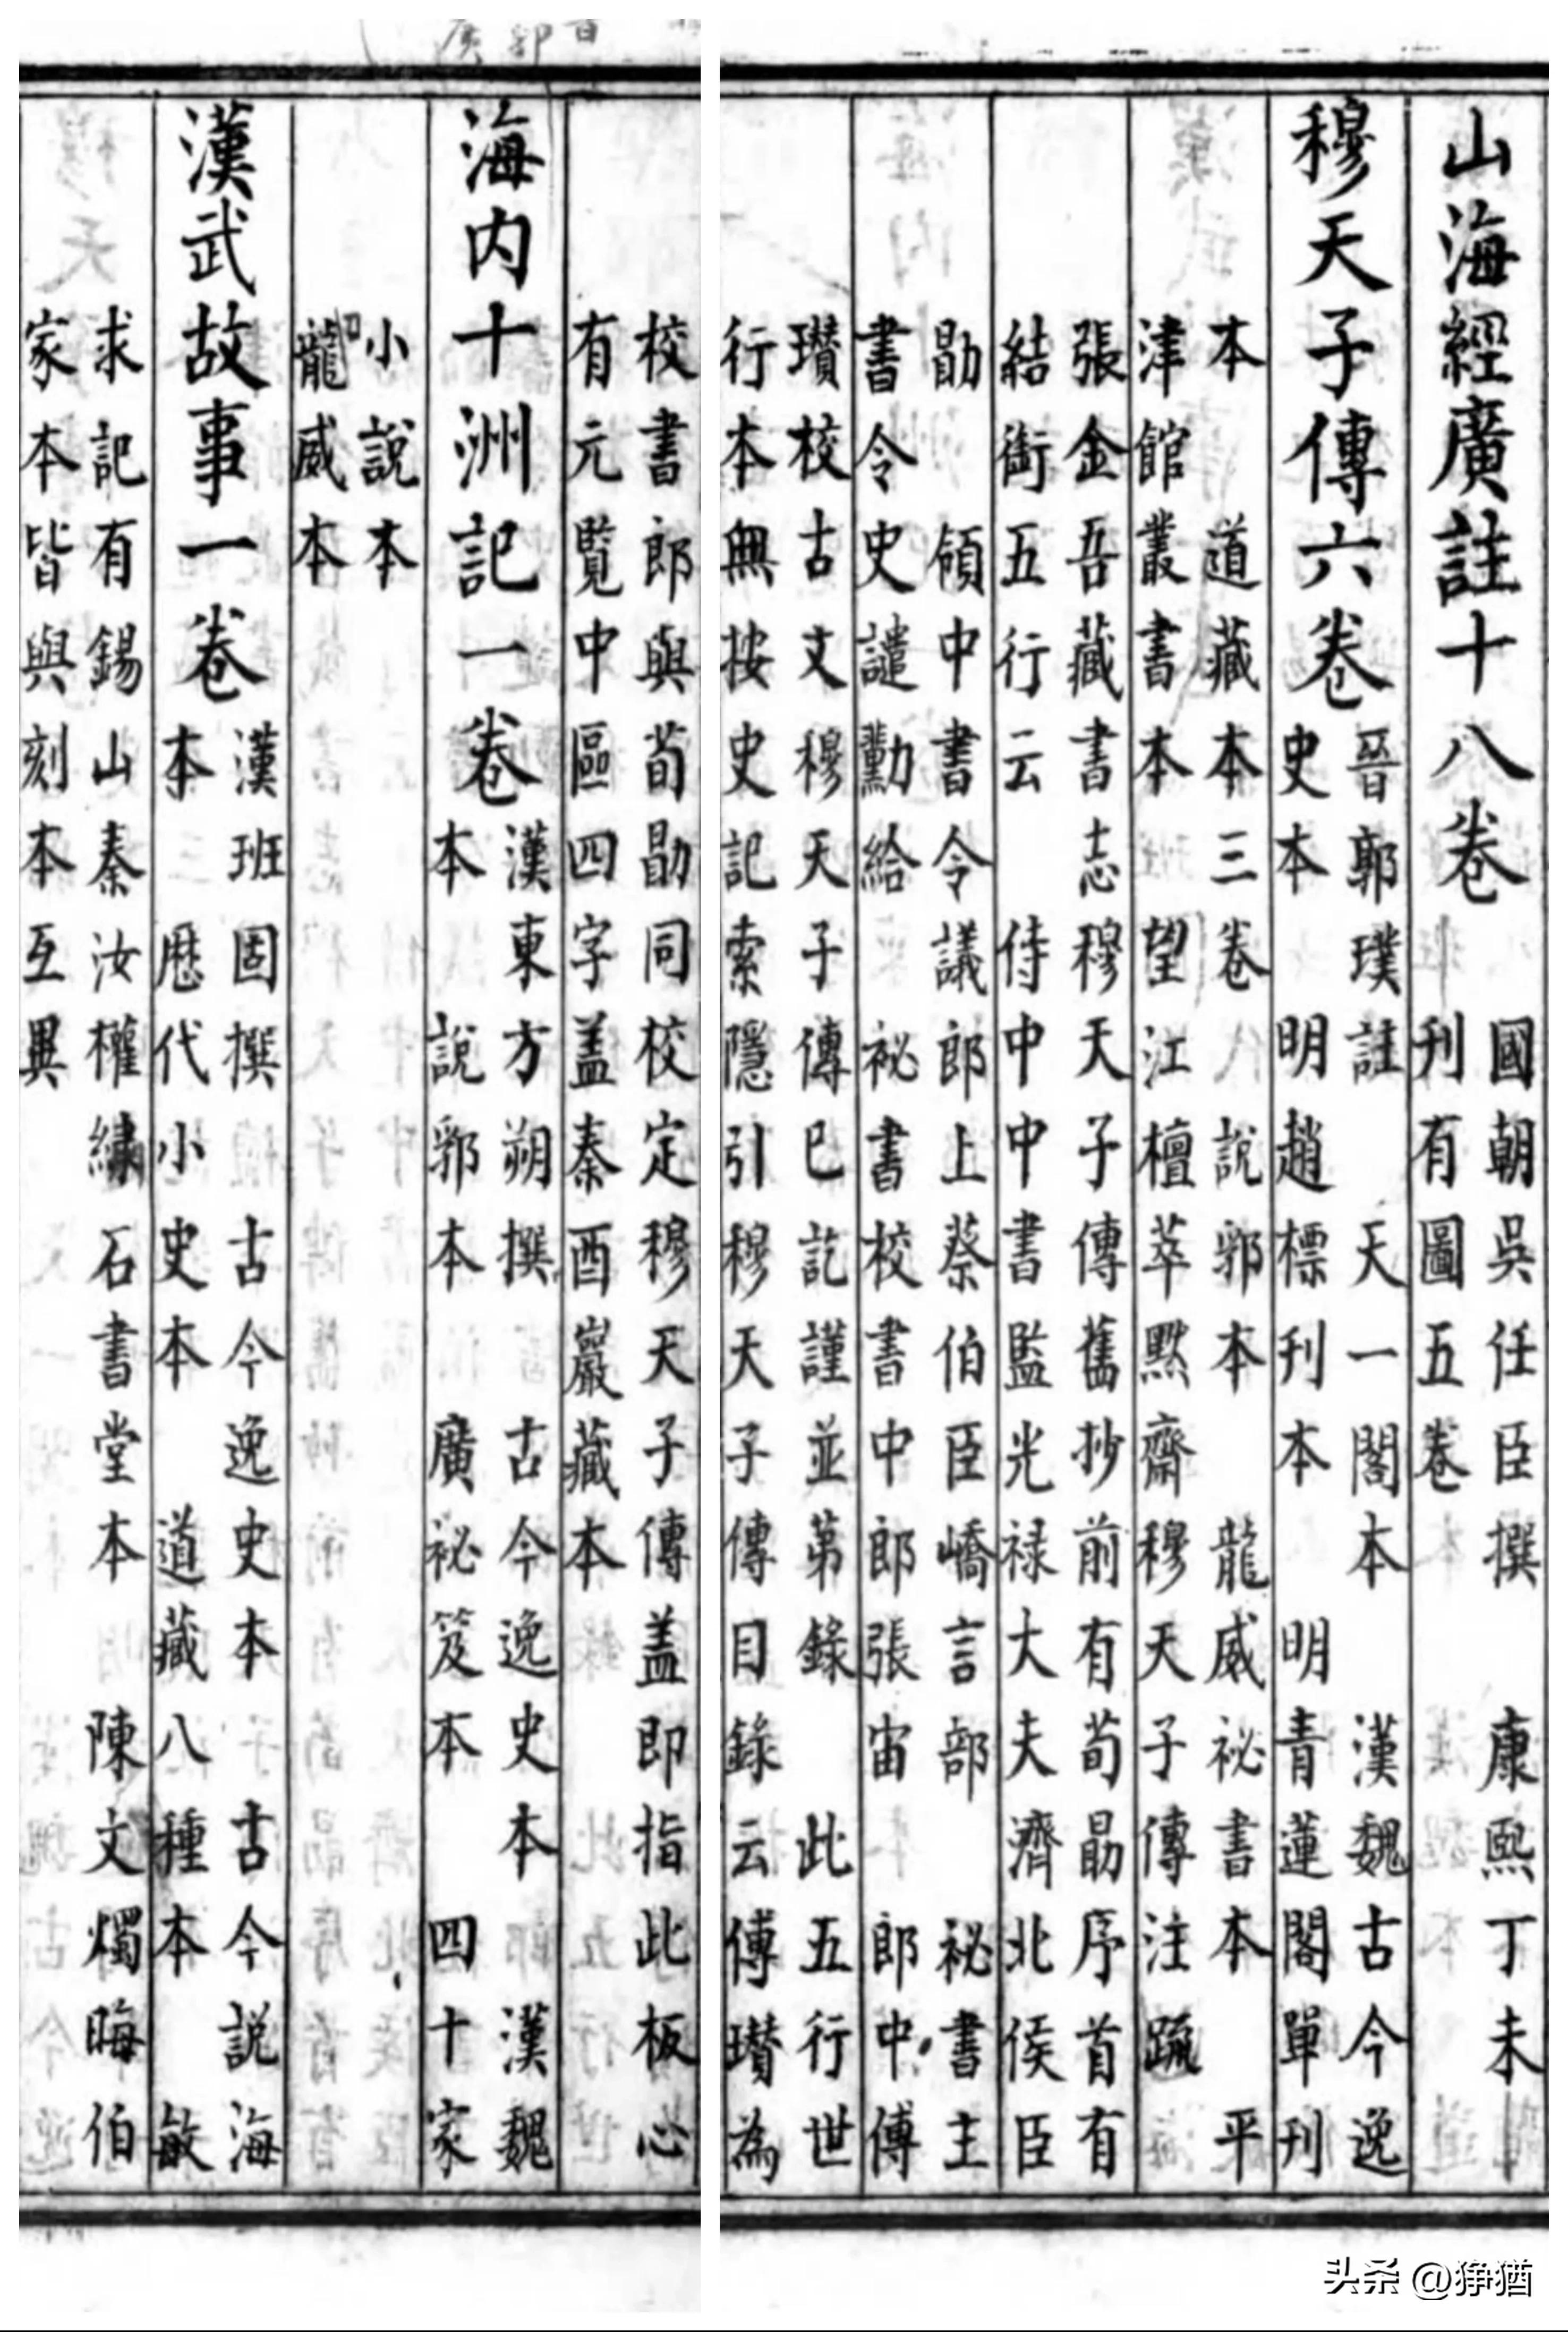 山海經廣註十八卷
國朝吳任臣撰 康熙丁未
刊有圖五卷
穆天子傳六卷
晉郭璞註 天一閣本 漢魏古今逸
史本 明趙標刊本 明青蓮閣單刊
本 道藏本三卷 說郛本 龍威祕書本 平
津館叢書本 望江檀萃黙齋穆天子傳注䟽
張金吾藏書志穆天子傳舊抄前有荀勗序首有
結銜五行云 侍中中書監光禄大夫濟北侯臣
勗 領中書令議郎上蔡伯臣嶠言部 祕書主
書令史譴勳給 祕書校書中郎張宙 郎中傅
瓚校古文穆天子傳已訖謹並第錄 此五行世
行本無按史記索隱引穆天子傳目錄云傅瓚為
校書郎與荀勗同校定穆天子傳盖即指此板心
有元覧中區四字盖秦酉巖藏本
海内十洲記一卷
漢東方朔撰 古今逸史本 漢魏
本 說郛本 廣祕笈本 四十家
小說本
龍威本
漢武故事一卷
漢班固撰 古今逸史本 古今説海
本 歷代小史本 道藏八種本 敏
求記有錫山秦汝權繍石書堂本 陳文燭晦伯
家本皆與刻本互異
头条 @狰猶